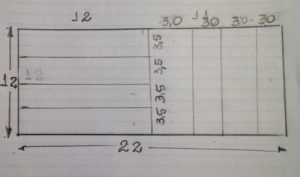 12 3,0 30 3.0 30
3,5
3,5
12
3,5
3,5
22